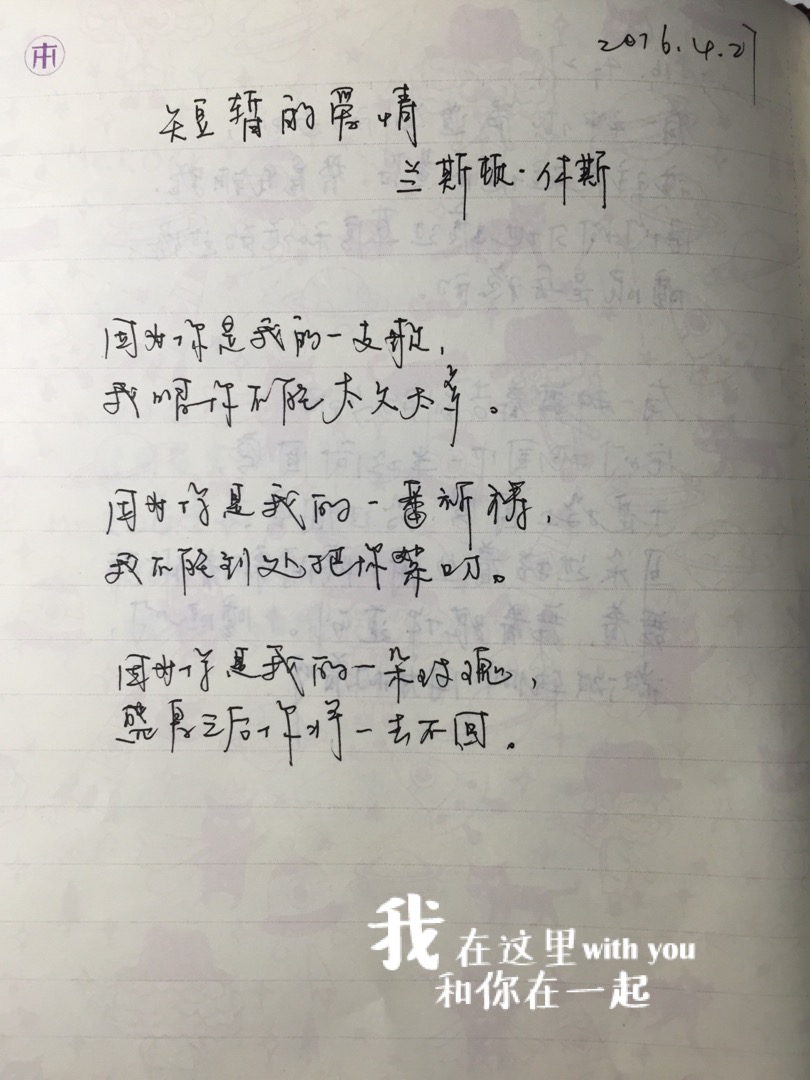 本
2016.4.21
短暂的爱情
兰斯顿·休斯
因为你是我的一支歌，
我唱你不能太久太多。
因为你是我的一番祈祷，
我不能到处把你絮叨。
因为你是我的一朵玫瑰，
盛夏之后你将一去不回。
我在这里with you
和你在一起